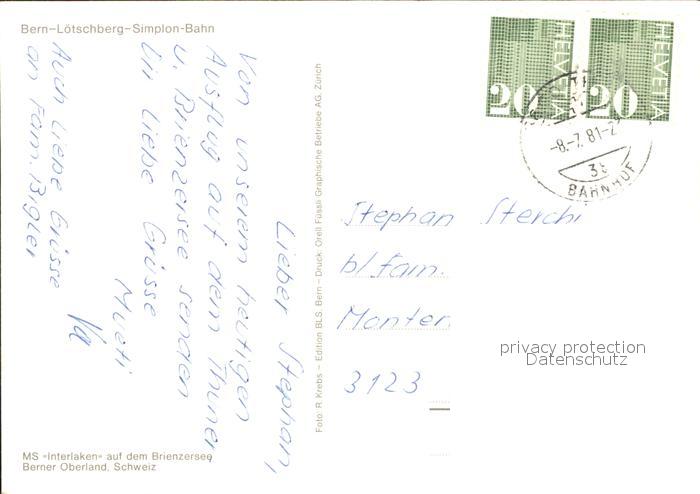 Bern–Lötschberg–Simplon-Bahn
Lieber Stephan,
Von unserem heutigen
Ausflug auf dem Thuner
u. Brienzersee senden
Dir liebe Grüsse
Mueti
Auch liebe Grüsse
an Fam. Bigler
MS «Interlaken» auf dem Brienzersee
Berner Oberland, Schweiz
Foto: R. Krebs – Edition BLS, Bern – Druck: Orell Füssli Graphische Betriebe AG, Zürich
HELVETIA
20
HELVETIA
20
-8.-7.81-2
BAHNHOF
Stephan Sterchi
b/Fam.
3123
privacy protection
Datenschutz